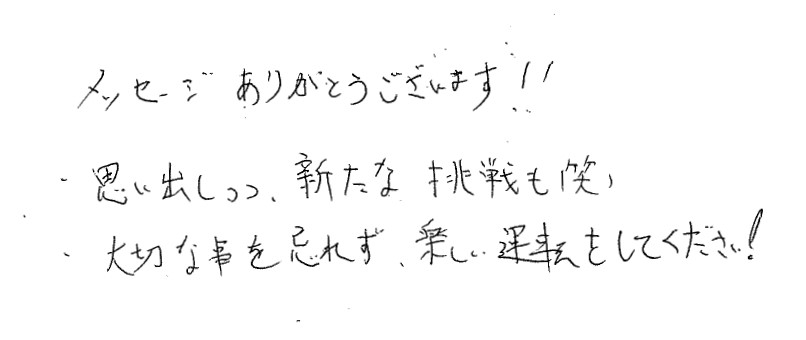 メッセージありがとうございます!!
・思い出しつつ、新たな挑戦も(笑)
・大切な事を忘れず、楽しい運転をしてください!